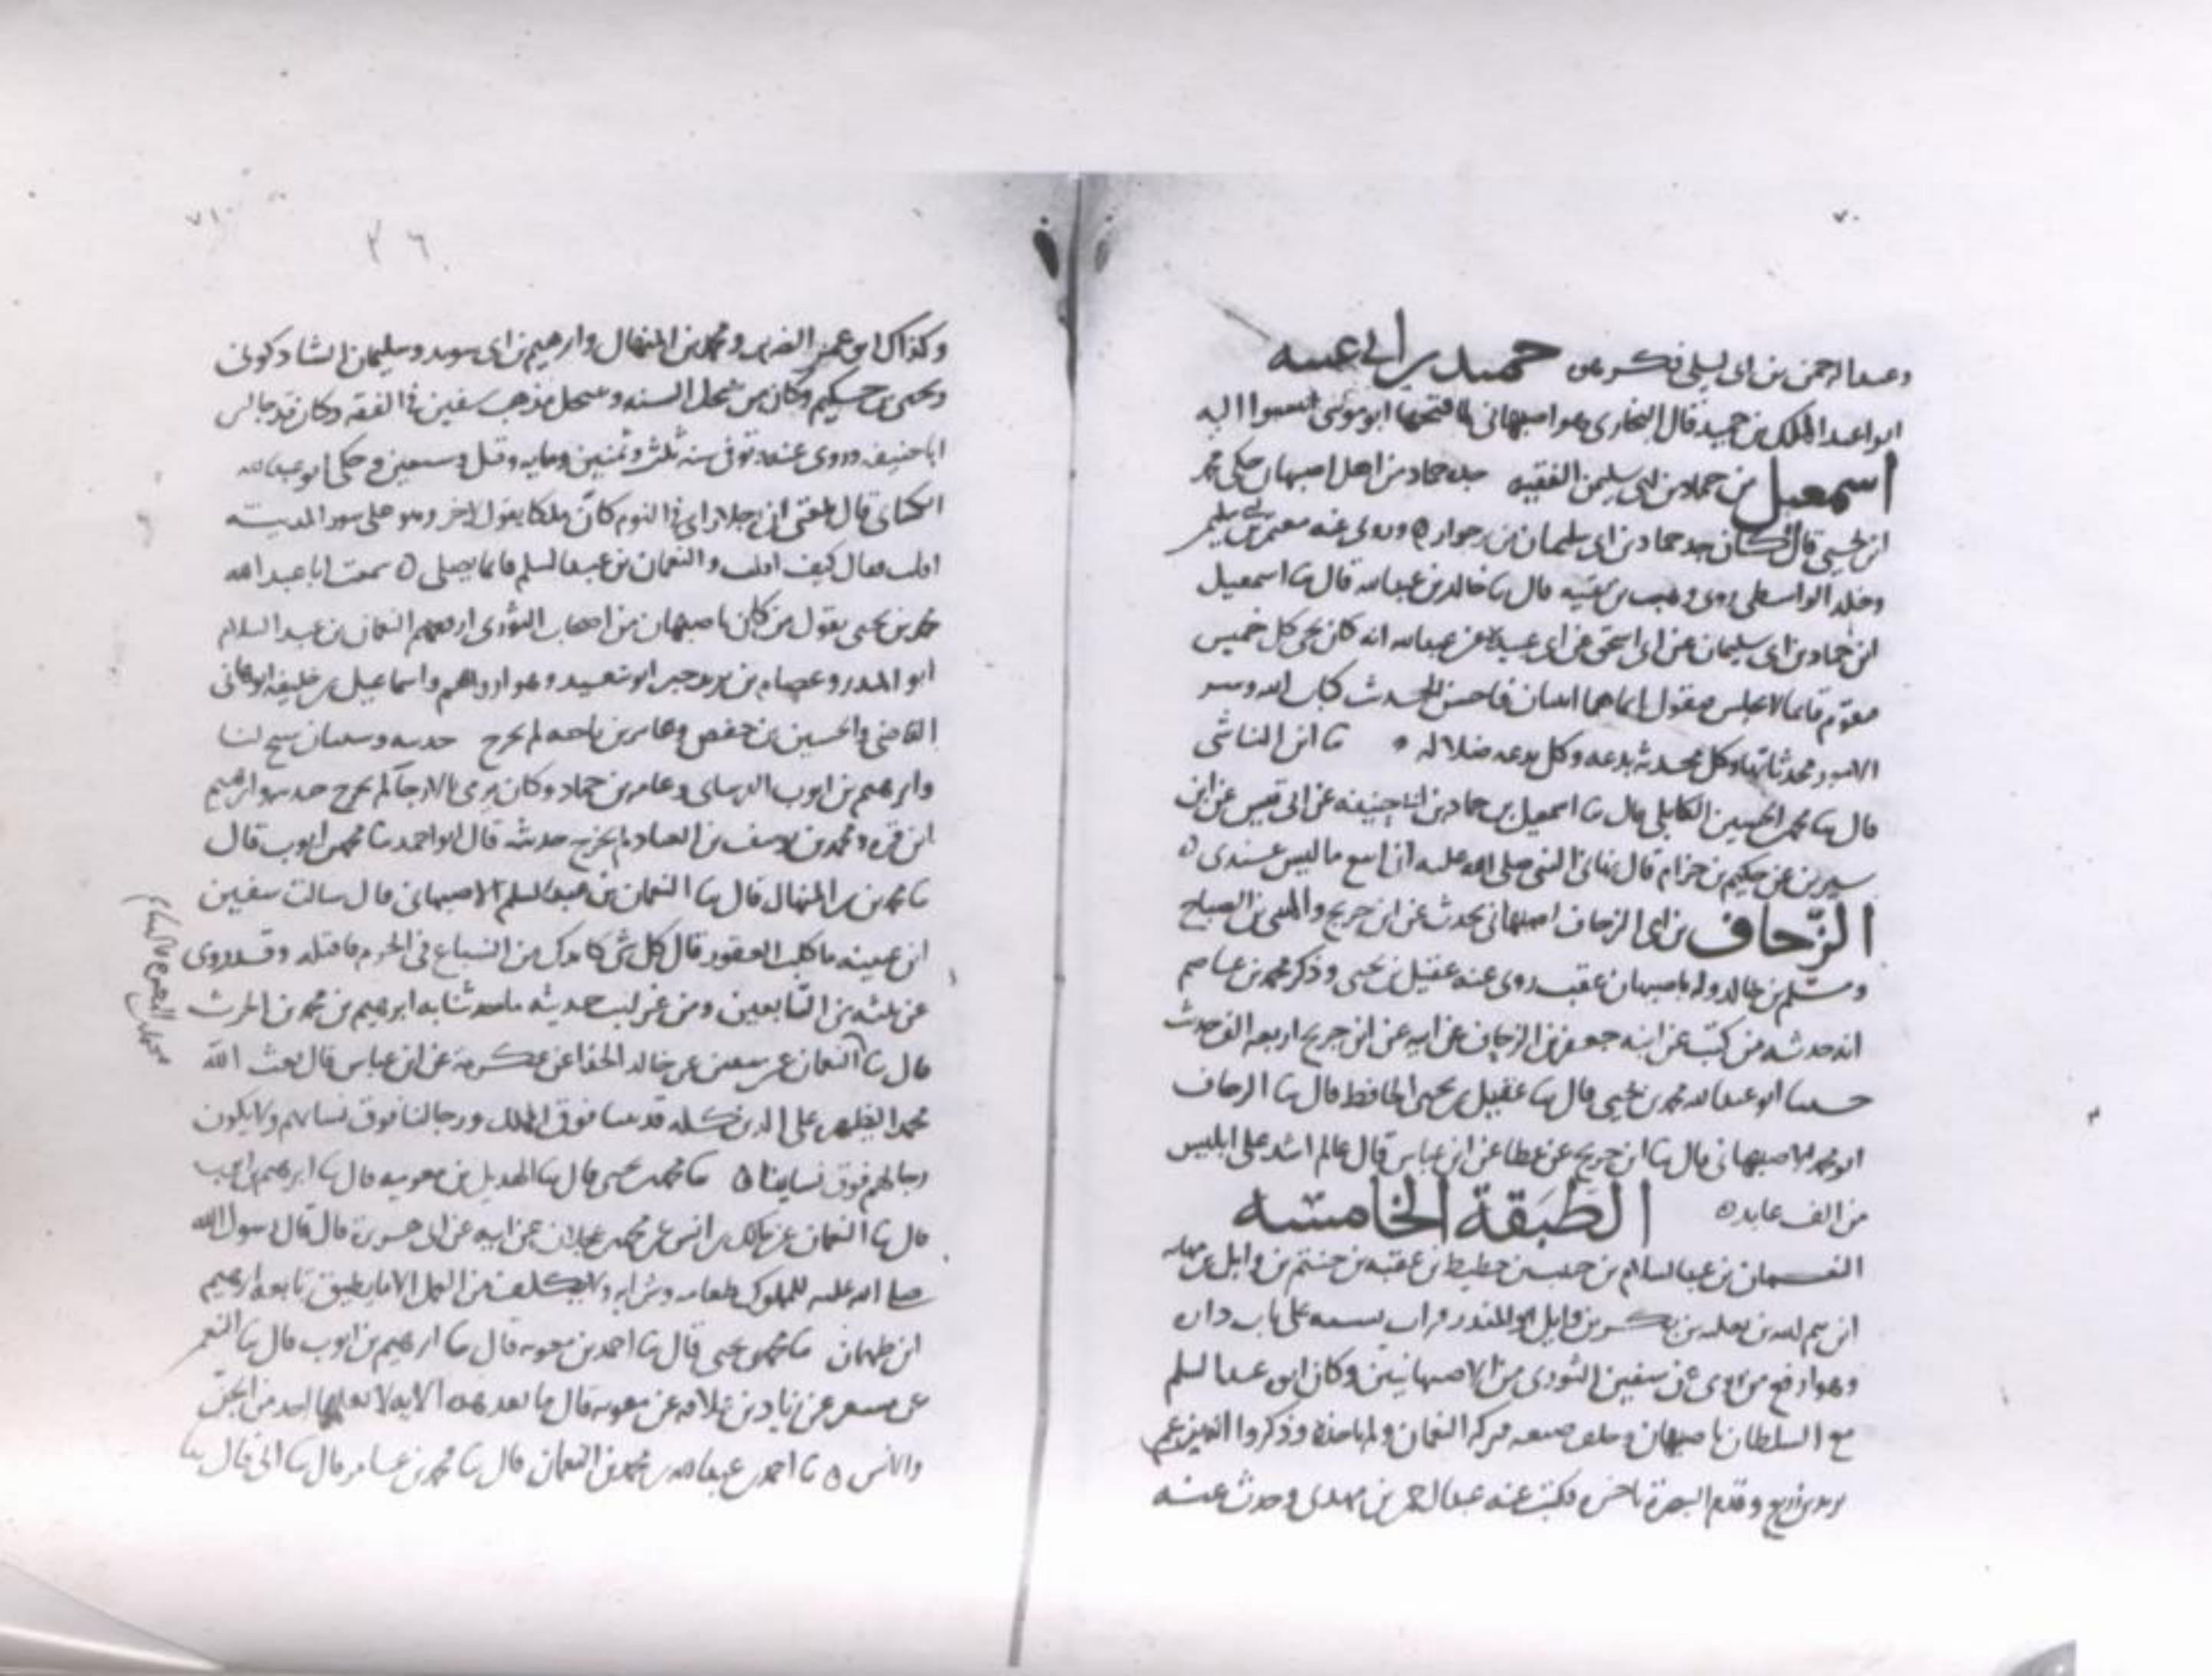 ٧٠
وعبد الرحمن بن ابى ليلى فى عكرمه حميد بن ابى غنيه
ابو عبد الملك بن حميد قال البخارى هو اصبهانى لما فتحها ابو موسى انتسبوا اليه
اسمعيل بن حماد بن ابى سليمن الفقيه جده حماد من اهل اصبهان حكى محمد
ابن يحيى قال كان جد حماد بن ابى سليمان من وروى عنه معتمر بن سليمن
وخلد الواسطى روى وهب بن بقيه قال ثنا خالد بن عبد الله قال ثنا اسمعيل
ابن حماد بن ابى سليمان عن ابى اسحق عن ابى عبيدة عن عبد الله انه كان كل خميس
فيقوم قائما لا يجلس فيقول انما هما اثنتان فاحسن الحديث كتاب الله وشر
الامور محدثاتها وكل محدثة بدعه وكل بدعه ضلاله ثنا ابن الناشى
قال ثنا محمد بن الحسين الكابلى قال ثنا اسمعيل بن حماد بن ابى حنيفه عن ابى قيس عن ابن
سيرين عن حكيم بن حزام قال نهانى النبى صلى الله عليه ان ابيع ما ليس عندى ه
الزّحاف بن ابى الزحاف اصبهانى يحدث عن ابن جريج والمثنى بن الصباح
ومسلم بن خالد وله باصبهان عقب روى عنه عقيل بن يحيى وذكر محمد بن عاصم
انه حدثه من كتب عن ابنه جعفر بن الزحاف عن ابيه عن ابن جريج اربعه الف حديث
حدثنا ابو عبد الله محمد بن يحيى قال ثنا عقيل بن يحيى الحافظ قال ثنا الزحاف
ابو محمد الاصبهانى قال ثنا ابن جريج عن عطا عن ابن عباس قال عالم اشد على ابليس
من الف عابد ه الطَبَقَة الخامسَه
النعمان بن عبد السلام بن حبيب بن حطيط بن عقبه بن خثيم بن وايل بن مهانه
ابن تيم الله بن ثعلبه بن بكر بن وايل ابو المنذر قرات نسبه على باب داره
وهو ارفع من روى عن سفين الثورى من الاصبهانيين وكان ابن عبد السلم
مع السلطان باصبهان وخلف ضيعه فتركه النعمان ولم ياخذه وذكروا انه من عم
يزيد بن زريع وقدم البصرة باخره فكتب عنه عبد الرحمن بن مهدى وحدث عنه
٧١
٣٦
وكذاك ابو عمر الضرير ومحمد بن المنهال وابرهيم بن ابى سويد وسليمان الشاذكونى
ويحيى بن حكيم وكان ممن ينتحل السنه وينتحل مذهب سفين فى الفقه وكان قد جالس
ابا حنيفه وروى عنه توفى سنه ثلث وثمنين ومايه وقيل وسبعين وحكى ابو عبد الله
الكسائى قال بلغنى ان رجلا راى فى النوم كان ملكا يقول لاخر وهو على سور المدينه
اقلب فقال كيف اقلب والنعمان بن عبد السلم قائما يصلى ه سمعت ابا عبد الله
محمد بن يحيى يقول من كان باصبهان من اصحاب الثورى ارفعهم النعمان بن عبد السلام
ابو المنذر وعصام بن يزيد جبر ابو سعيد وهو ارواهم واسماعيل بن خليفه ابو هانى
القاضى والحسين بن حفص وعامر بن ناجيه لم يخرج حديثه وسليمان شيخ لنا
وابرهيم بن ايوب الفرسانى وعامر بن حماد وكان يرمى بالارجآء لم يخرج حديثه وابرهيم
ابن قره ومحمد بن يوسف بن العباد لم يخرج حديثه قال ابو احمد ثنا محمد بن ايوب قال
ثنا محمد بن المنهال قال ثنا النعمان بن عبد السلم الاصبهانى قال سالت سفين
ابن عيينه ما الكلب العقور قال كل شى كابرك من السباع فى الحرم فاقتله وقد روى
عن ثلثه من التابعين ومن غرايب حديثه ما حدثنا به ابرهيم بن محمد بن الحرث
قال ثنا النعمان عن سفين عن خالد الحذا عن عكرمة عن ابن عباس قال بعث الله
محمدا ليظهره على الدين كله فديننا فوق الملل ورجالنا فوق نسايهم ولا يكون
رجالهم فوق نساينا ه ثنا محمد بن يحيى قال ثنا الهذيل بن معويه قال ثنا ابرهيم بن ايوب
قال ثنا النعمان عن مالك بن انس عن محمد بن عجلان عن ابيه عن ابى هريرة قال قال رسول الله
صلى الله عليه للمملوك طعامه وشرابه ولا يكلف من العمل الا ما يطيق تابعه ابرهيم
ابن طهمان ثنا محمد بن يحيى قال ثنا احمد بن معويه قال ثنا ابرهيم بن ايوب قال ثنا النعمن
عن مسعر عن زياد بن علاقه عن معويه قال ما بعد هذه الايه لا يعلمها احد من الجن
والانس ه ثنا احمد بن عبد الله بن محمد بن النعمان قال ثنا محمد بن عامر قال ثنا ابى قال ثنا